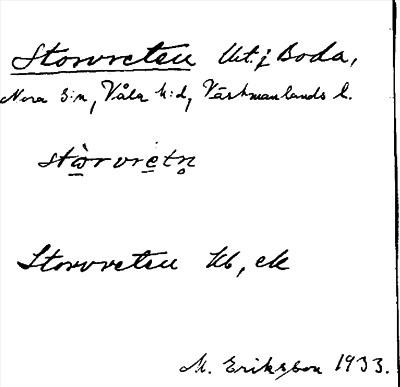 Storvreten Ut. j Boda,
Nora s:n, Våla h:d, Västmanlands l.
stòrvretn̥
Storvreten Kb, ek
M. Eriksson 1933.